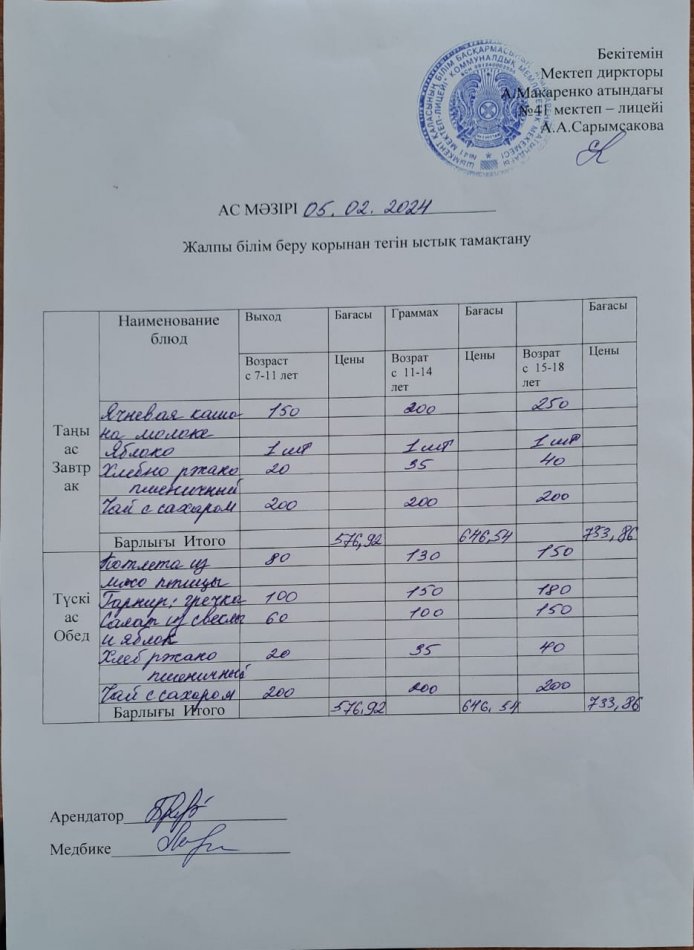 Бекітемін
Мектеп диркторы
А.Макаренко атындағы
№41 мектеп – лицейі
А.А.Сарымсакова
АС МӘЗІРІ 05.02.2024
Жалпы білім беру қорынан тегін ыстық тамақтану
Наименование блюд Выход Бағасы Граммах Бағасы Бағасы
Возраст с 7-11 лет Цены Возрат с 11-14 лет Цены Возрат с 15-18 лет Цены
Таңы ас Завтр ак
Ячневая каша 150 200 250
на молоке
Яблоко 1 шт 1 шт 1 шт
Хлебно ржано 20 35 40
пшеничный
Чай с сахаром 200 200 200
Барлығы Итого 576,92 646,54 733,86
Түскі ас Обед
Котлета из 80 130 150
мясо птицы
Гарнир: гречка 100 150 180
Салат из свеклы 60 100 150
и яблок
Хлеб ржано 20 35 40
пшеничный
Чай с сахаром 200 200 200
Барлығы Итого 576,92 646,54 733,86
Арендатор
Медбике